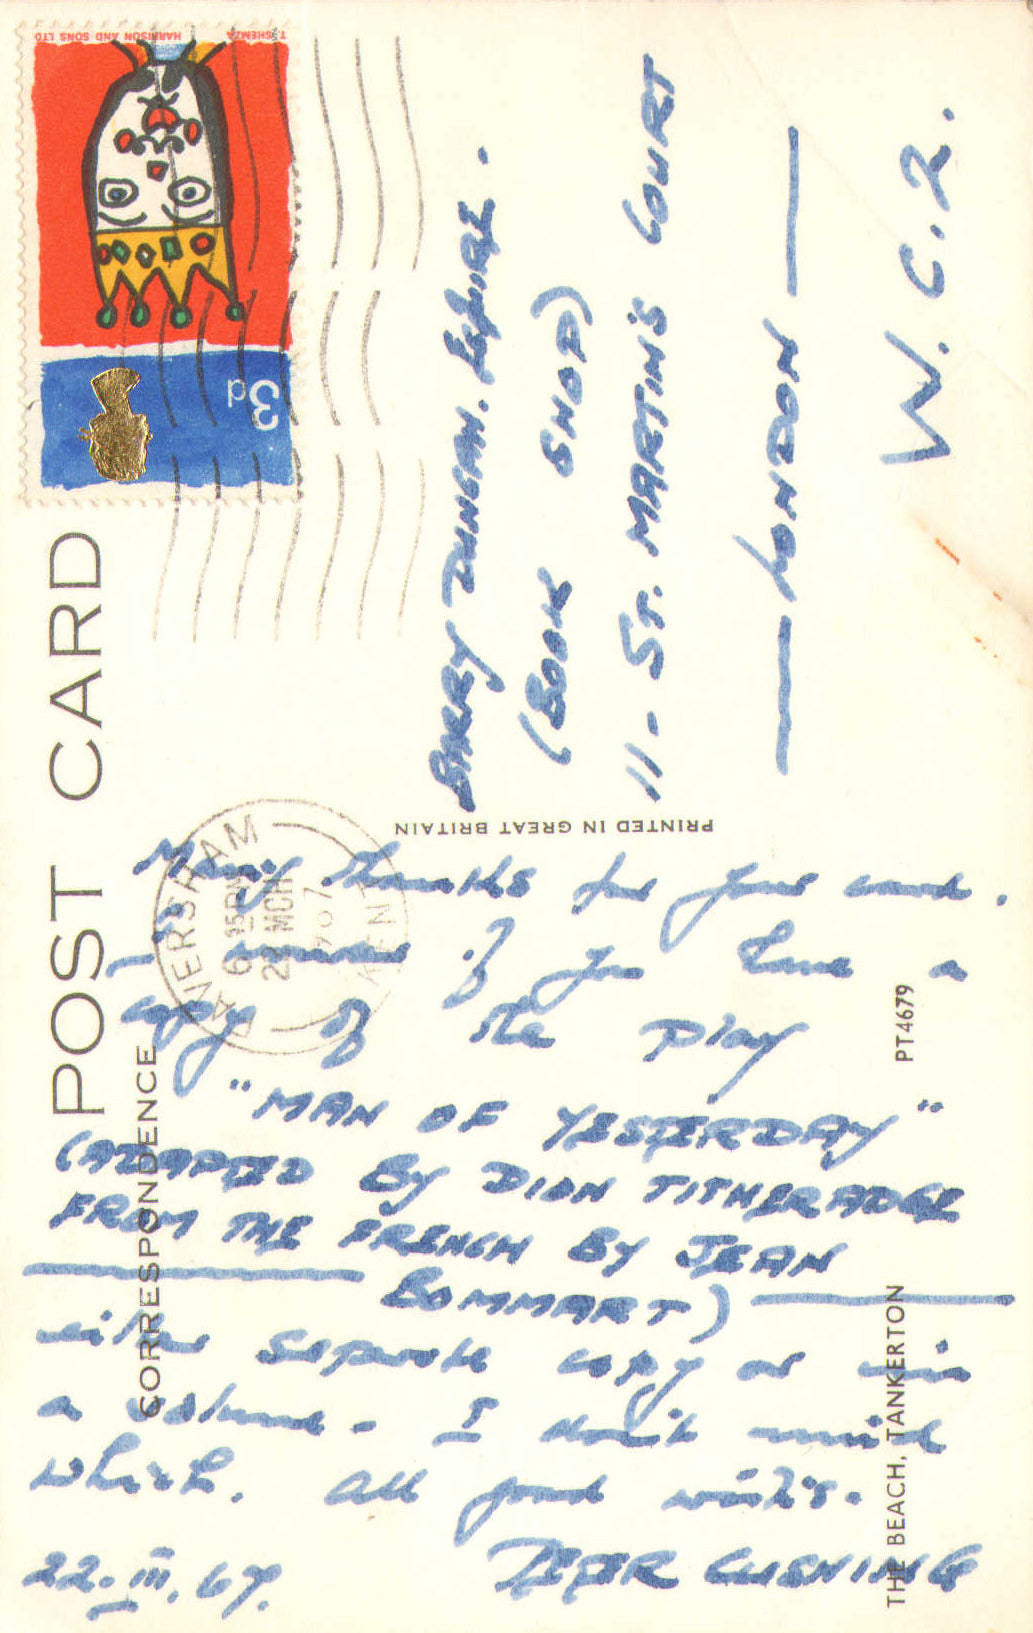 POST CARD
CORRESPONDENCE
T. SHEMZA
HARRISON AND SONS LTD
3d
FAVERSHAM
6 15PM
22 MCH
1967
KENT
Many thanks for your card.
I wonder if you have a
copy of the play
"MAN OF YESTERDAY"
(ADAPTED BY DION TITHERADGE
FROM THE FRENCH BY JEAN
BOMMART)
either separate copy or in
a volume. I don't mind
which. All good wishes.
22.III.67.
PETER CUSHING
BARRY DUNCAN. ESQUIRE.
(BOOK SHOP)
11- ST. MARTIN'S COURT
LONDON
W.C.2.
PRINTED IN GREAT BRITAIN
PT4679
THE BEACH, TANKERTON